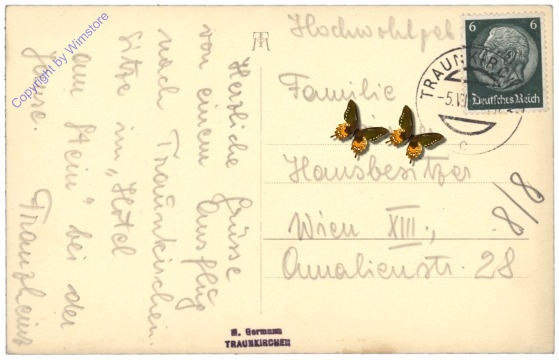 Herzliche Grüsse
von einem Ausflug
nach Traunkirchen.
Sitze im „Hotel
am Stein" bei der
Jause.
Hochwohlgeb
Familie
Hausbesitzer
Wien XIII.,
Amalienstr. 28
8/8
6
Deutsches Reich
TRAUNKIRCHEN
-5.VI
c
M. Germann
TRAUNKIRCHEN
Copyright by Wimstore